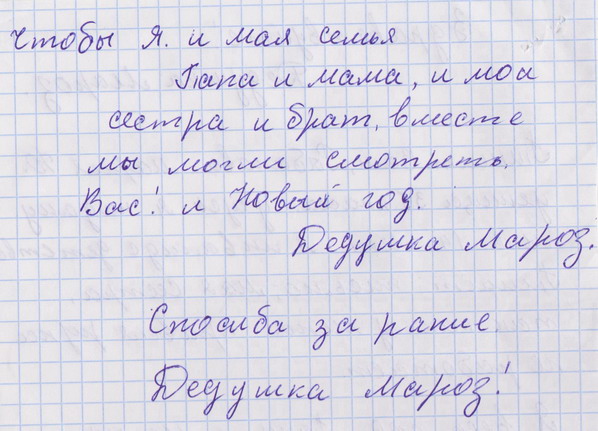 Чтобы Я. и мая семья
Папа и мама, и моя
сестра и брат, вместе
мы могли смотреть.
Вас! и Новый год.
Дедушка Мароз.
Спосиба за рание
Дедушка Мароз!